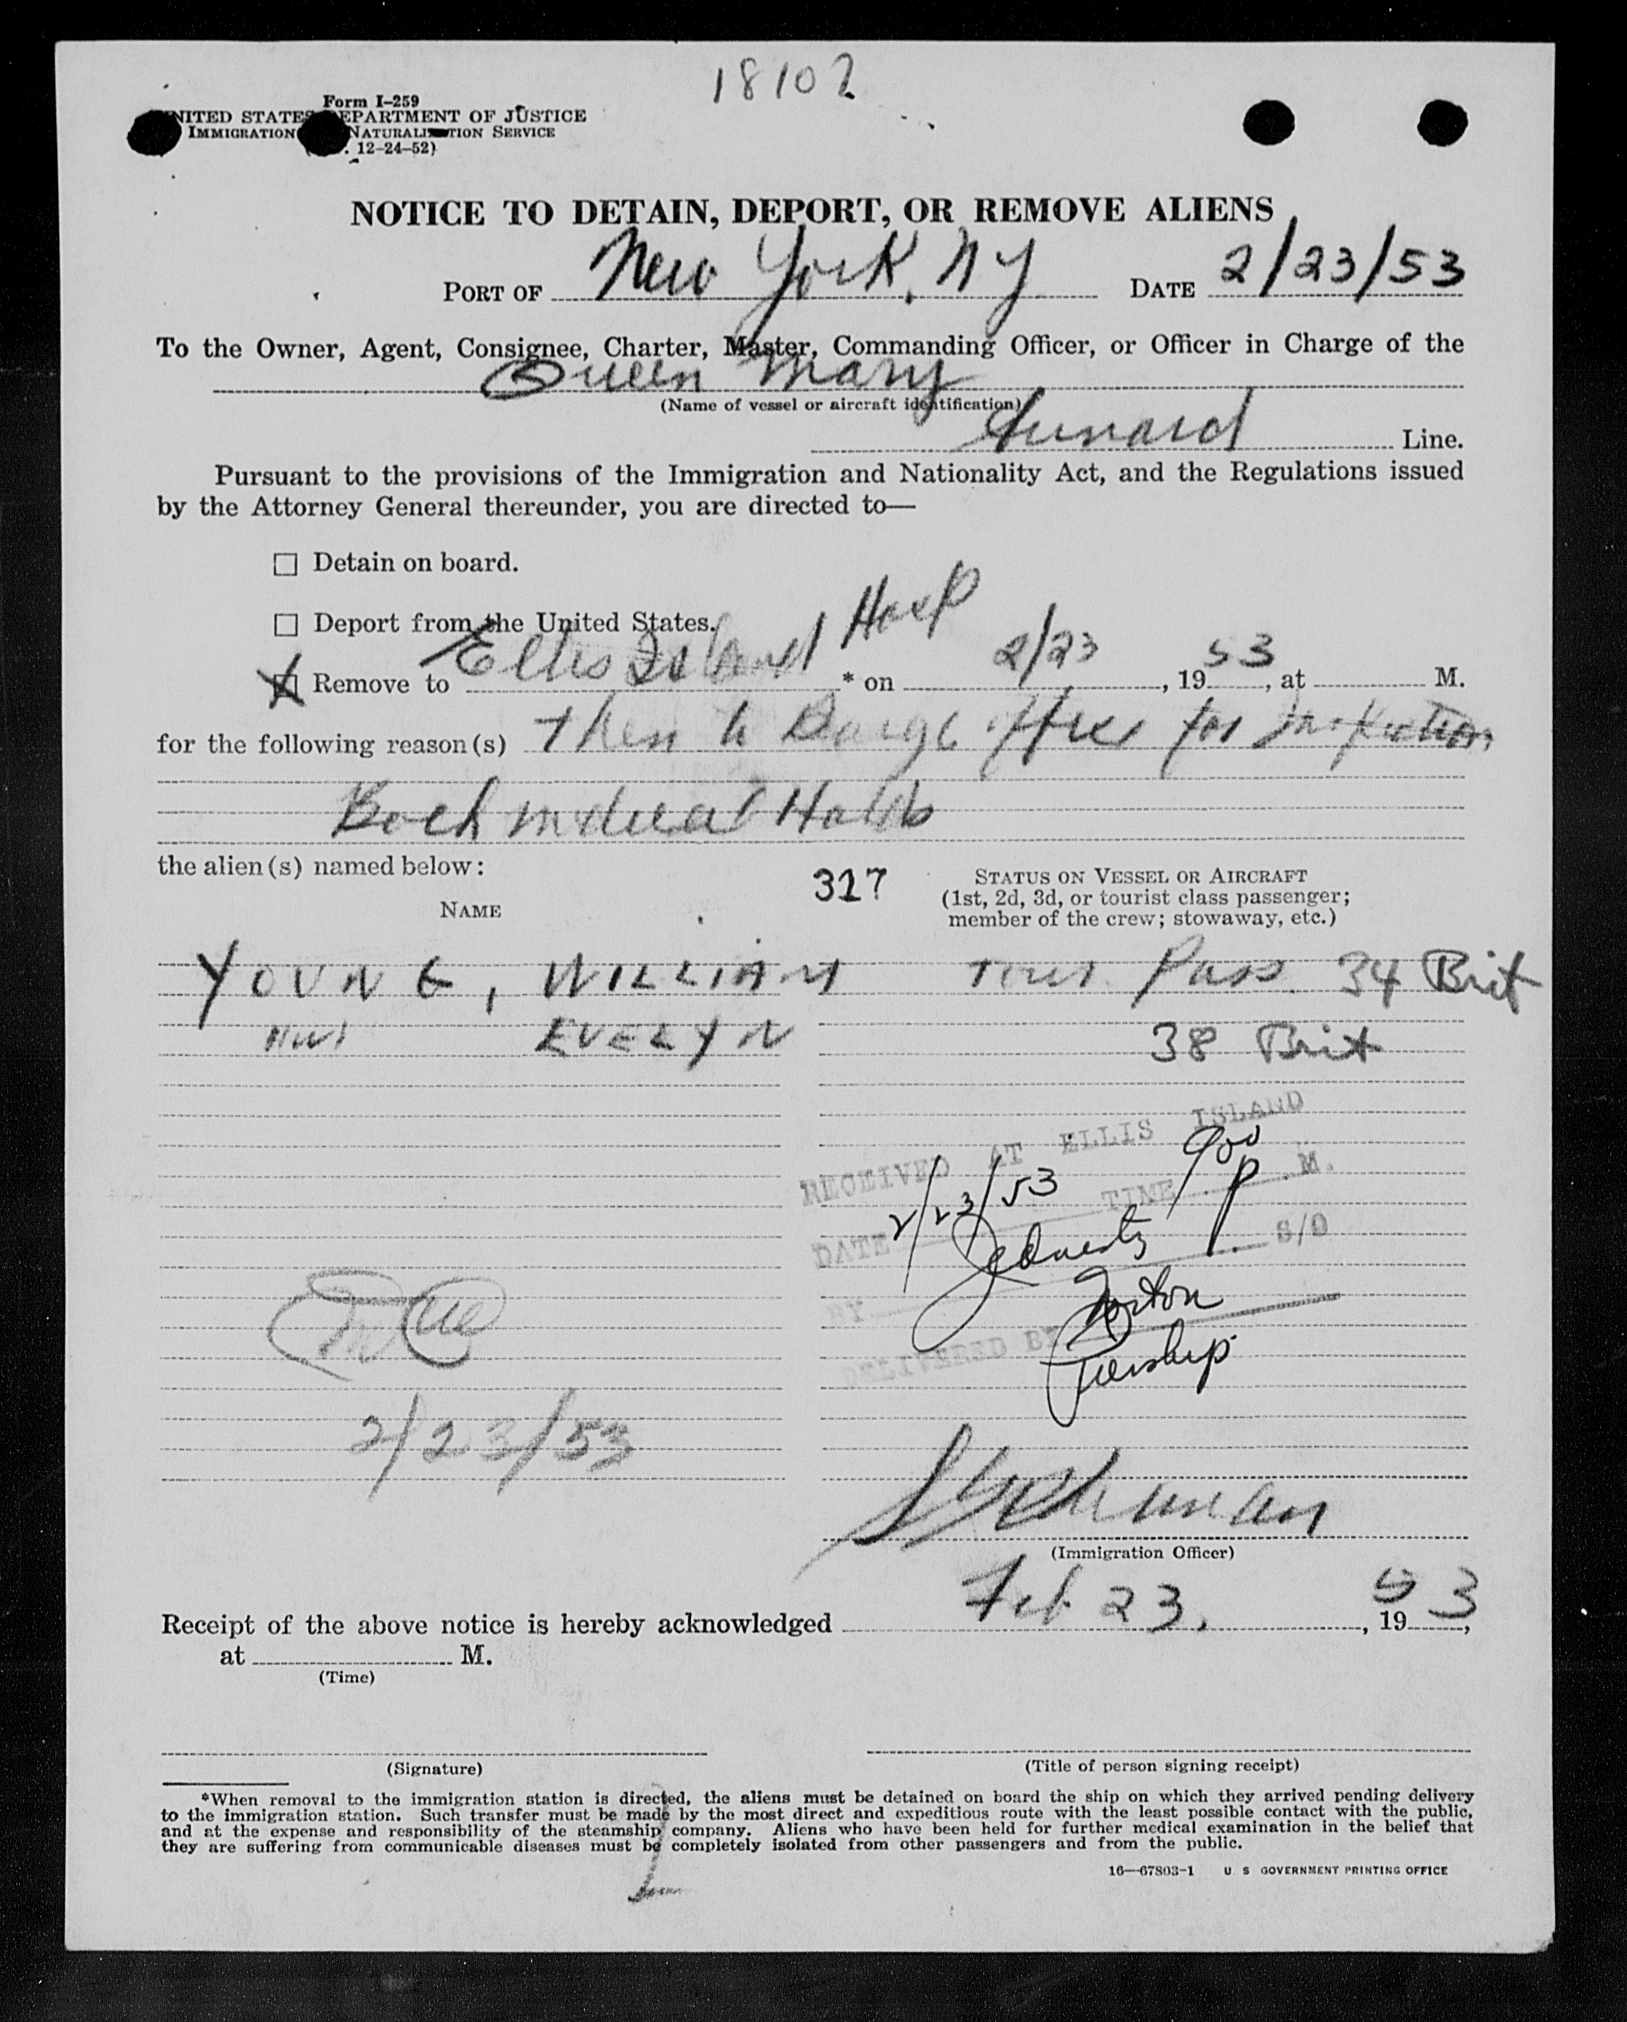 18102
Form I-259
UNITED STATES DEPARTMENT OF JUSTICE
IMMIGRATION NATURALIZATION SERVICE
12-24-52)
NOTICE TO DETAIN, DEPORT, OR REMOVE ALIENS
PORT OF New York, NY DATE 2/23/53
To the Owner, Agent, Consignee, Charter, Master, Commanding Officer, or Officer in Charge of the
Queen Mary
(Name of vessel or aircraft identification)
Cunard Line.
Pursuant to the provisions of the Immigration and Nationality Act, and the Regulations issued
by the Attorney General thereunder, you are directed to—
☐ Detain on board.
☐ Deport from the United States.
☒ Remove to Ellis Island Hosp * on 2/23, 1953, at M.
for the following reason(s) then to Barge office for Inspection
Both medical Holds
the alien(s) named below:
317
NAME
STATUS ON VESSEL OR AIRCRAFT
(1st, 2d, 3d, or tourist class passenger;
member of the crew; stowaway, etc.)
YOUNG, WILLIAM Tour. Pass. 34 Brit
EVELYN 38 Brit
RECEIVED AT ELLIS ISLAND
DATE 2/23/53 TIME 900 P M.
BY S/O
DELIVERED BY Norton
2/23/53
(Immigration Officer)
Receipt of the above notice is hereby acknowledged Feb 23, 1953,
at M.
(Time)
(Signature)
(Title of person signing receipt)
*When removal to the immigration station is directed, the aliens must be detained on board the ship on which they arrived pending delivery
to the immigration station. Such transfer must be made by the most direct and expeditious route with the least possible contact with the public,
and at the expense and responsibility of the steamship company. Aliens who have been held for further medical examination in the belief that
they are suffering from communicable diseases must be completely isolated from other passengers and from the public.
16—67803-1 U S GOVERNMENT PRINTING OFFICE